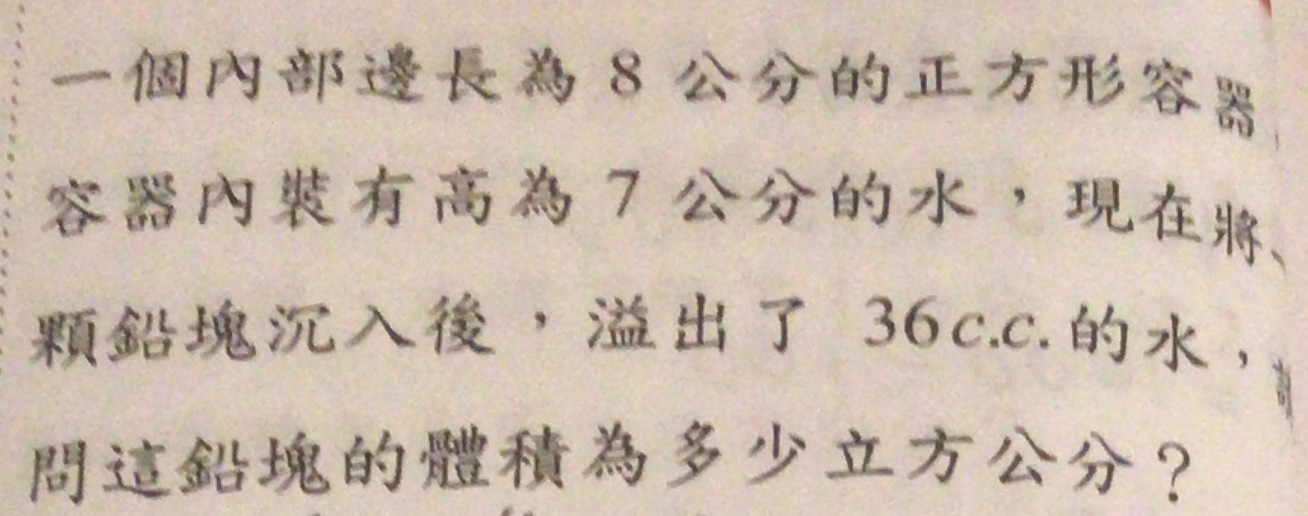 一個內部邊長為 8 公分的正方形容器
容器內裝有高為 7 公分的水，現在將
顆鉛塊沉入後，溢出了 36c.c.的水，
問這鉛塊的體積為多少立方公分？